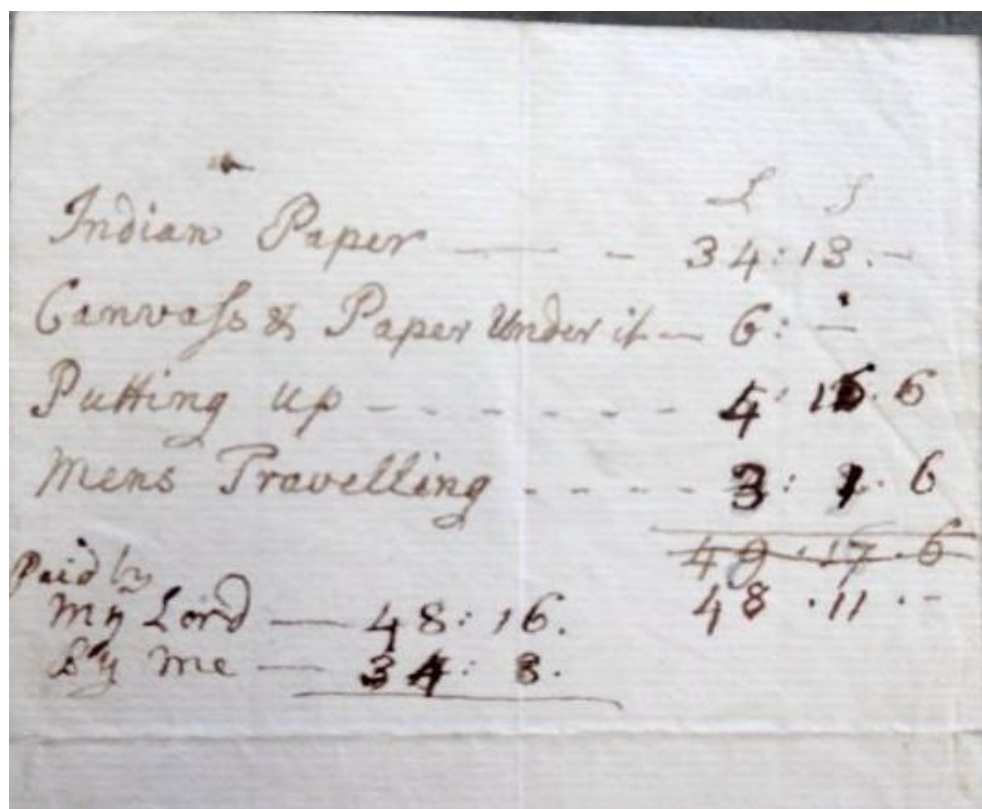 L S
Indian Paper — - - 34:13.-
Canvaſs & Paper Under it — 6: -
Putting up - - - - - - - 4: 16. 6
Mens Travelling - - - - - 3: 1. 6
49.17.6
Paid by
My Lord — 48: 16. 48 .11 .-
By Me — 34: 8.